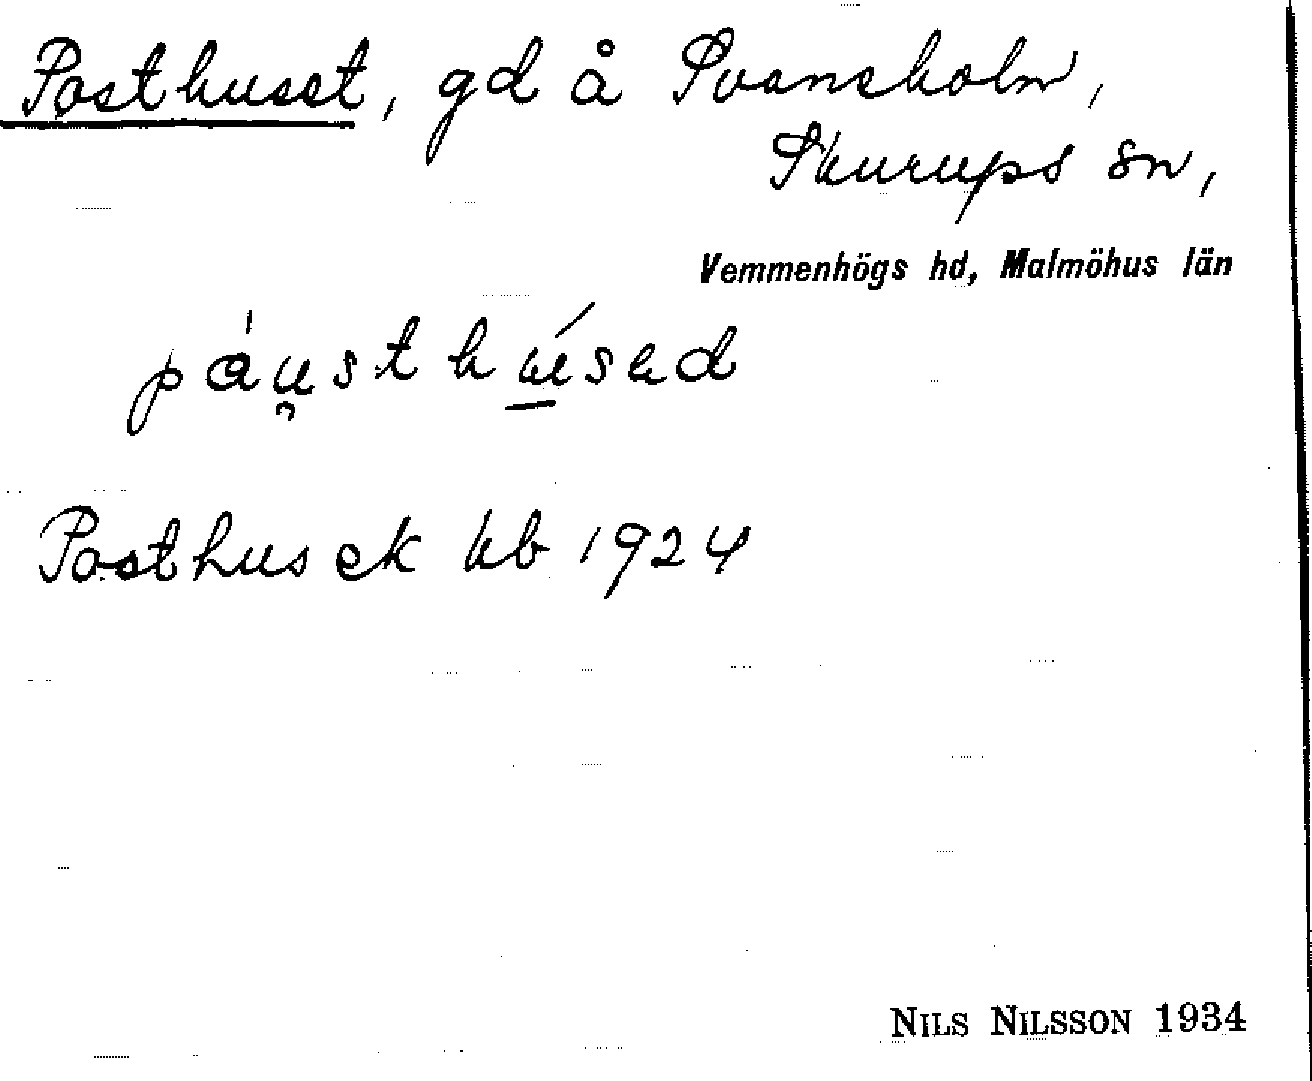 Posthuset, gd å Svaneholm,
Skurups sn,
Vemmenhögs hd, Malmöhus län
Posthus ek kb 1924
NILS NILSSON 1934